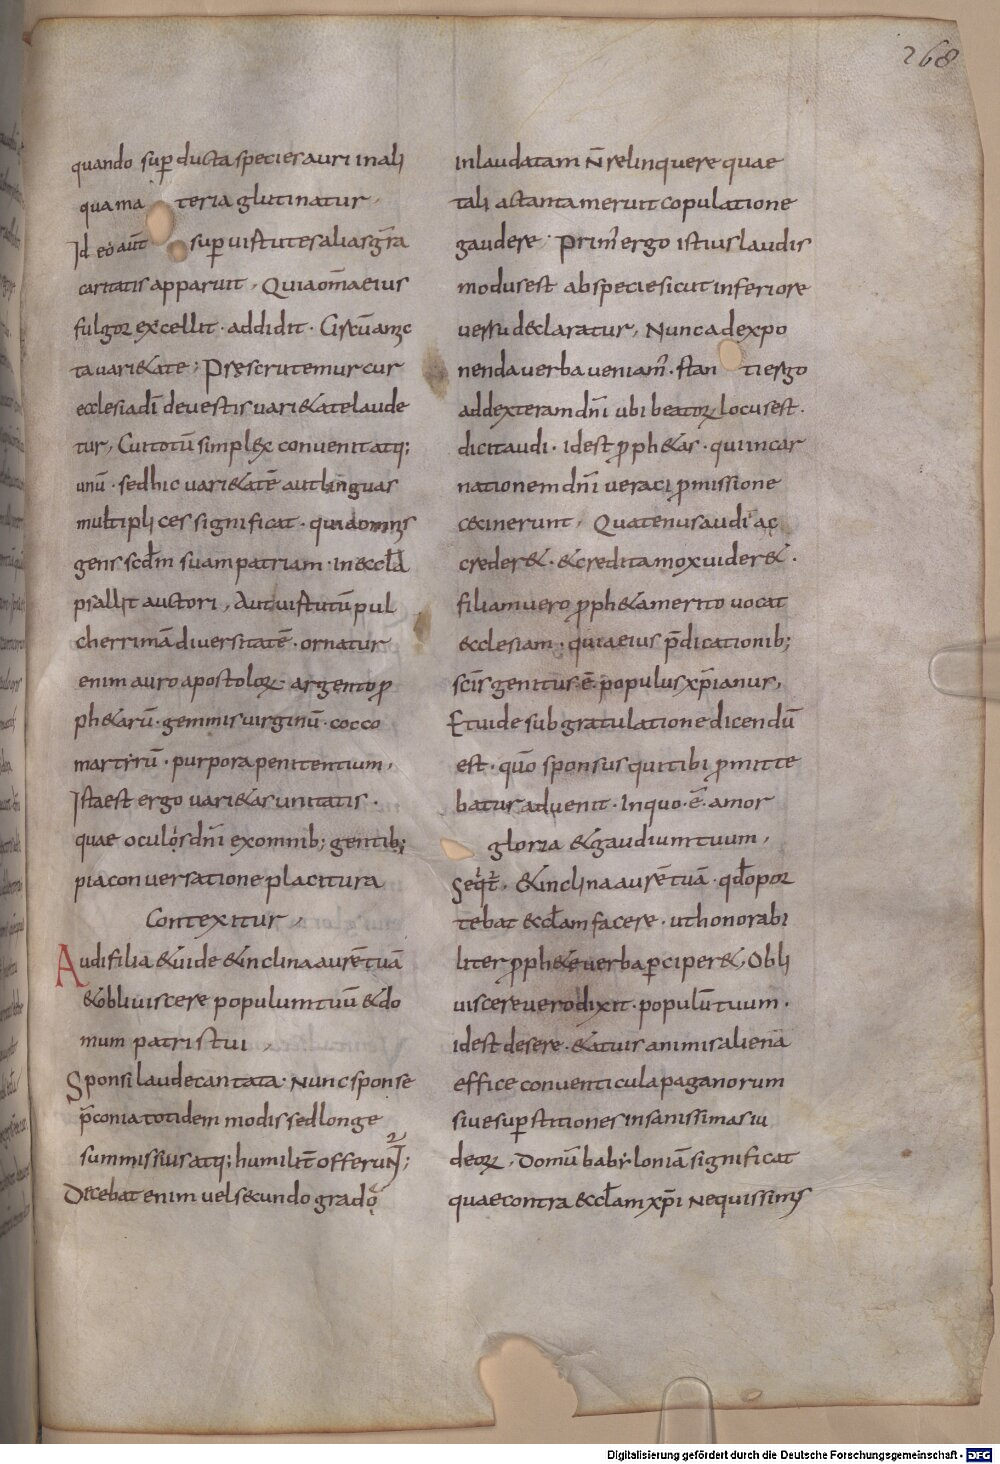 268
quando sup̱ ducta species auri in ali
qua ma teria glutinatur,
Ideo aut̄ sup̱ uirtutes alias gr̄a
caritatis apparuit, Quia om̄a eius
fulgor excellit · addidit · Circūam&c
ta uari&ate; Perscrutemur cur
ecclesia dī de uestis uari&ate laude
tur, Cui totū simplex conuenit atq;
unū · sed hic uari&atē aut linguas
multiplices significat · quia omnis
gens scd̄m suam patriam · in eccl̄a
psallit auctori, Aut uirtutū pul
cherrimā diuersitatē · ornatur
enim auro apostoloꝝ argento ꝓ
ph&arū · gemmis uirginū · cocco
martyrū · purpora penitentium,
Ista est ergo uari&as unitatis ·
quae oculis dn̄i ex omnib; gentib;
pia conuersatione placitura
Contexitur,
Audi filia & uide & inclina aurē tuā
& obliuiscere populum tuū & do
mum patris tui,
Sponsi laude cantata · Nunc sponse
p̄conia totidem modis sed longe
summissius atq; humilit̄ offerunt;
Decebat enim uel secundo grado
inlaudatam n̄ relinquere quae
tali ac tanta meruit copulatione
gaudere; Prim̄ ergo istius laudis
modus est ab specie sicut inferiore
uersu declaratur, Nunc ad expo
nenda uerba ueniam̄ · stan ti ergo
ad dexteram dn̄i ubi beatoꝝ locus est ·
dicit audi · id est ꝓph&as · qui incar
nationem dn̄i ueraci ꝓmissione
cecinerunt, Quatenus audi ac
creder& · & credita mox uider& ·
filiam uero ꝓph&a merito uocat
ecclesiam · quia eius p̄dicationib;
scīs genitus ē populus xp̄ianus,
Et uide sub gratulatione dicendū
est · quō sponsus qui tibi ꝓmitte
batur aduenit · In quo · ē · amor
gloria & gaudium tuum,
Seqt̄, & inclina aurē tuā · qd̄ opor
tebat eccl̄am facere · ut honorabi
liter ꝓph&e uerba p̱ciper&, Obli
uiscere uero dixit · populū tuum ·
id est desere · & a tuis animis aliena
effice conuenticula paganorum
siue sup̱stitiones insanissimas iu
deoꝝ, Domū babyloniā significat
quae contra eccl̄am xp̄i nequissimis
Digitalisierung gefördert durch die Deutsche Forschungsgemeinschaft - DFG